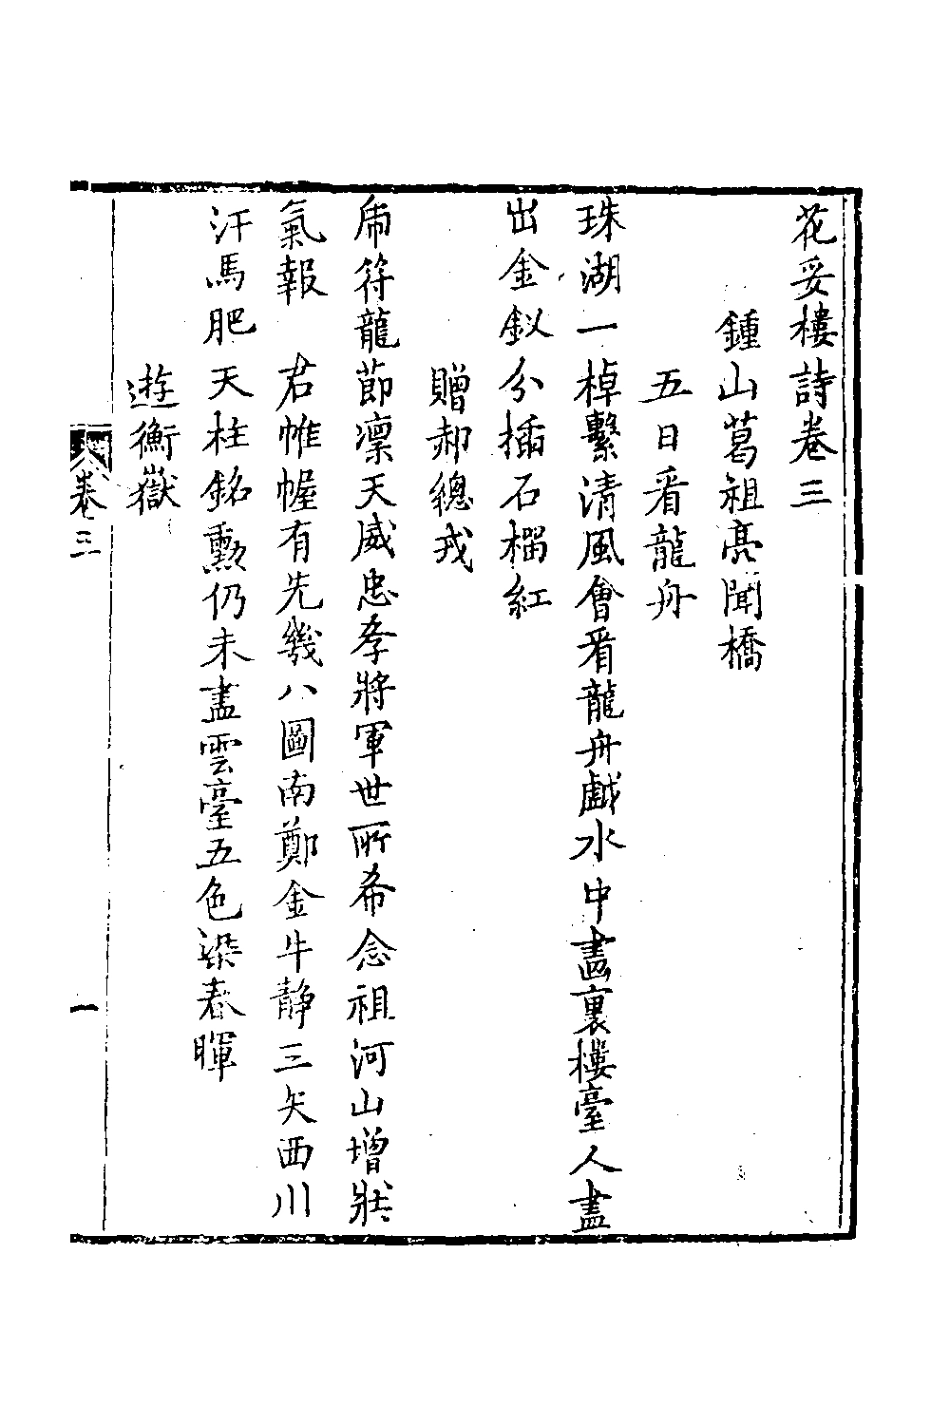 花妥樓詩卷三
鍾山葛祖亮聞橋
五日看龍舟
珠湖一棹繫清風會看龍舟戯水中畵裏樓臺人盡
出金釵分插石榴紅
贈郝總戎
虎符龍節凛天威忠孝將軍世所希念祖河山增壯
氣報　君帷幄有先幾八圖南鄭金牛静三矢西川
汗馬肥天柱銘勲仍未盡雲臺五色染春暉
遊衡嶽
卷三
一